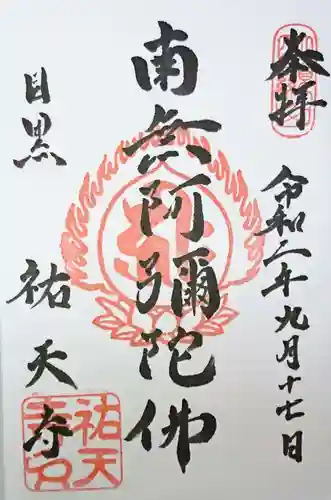 奉拝
令和二年九月十七日
南無阿彌陀佛
目黒
祐天寺
祐天
寺印